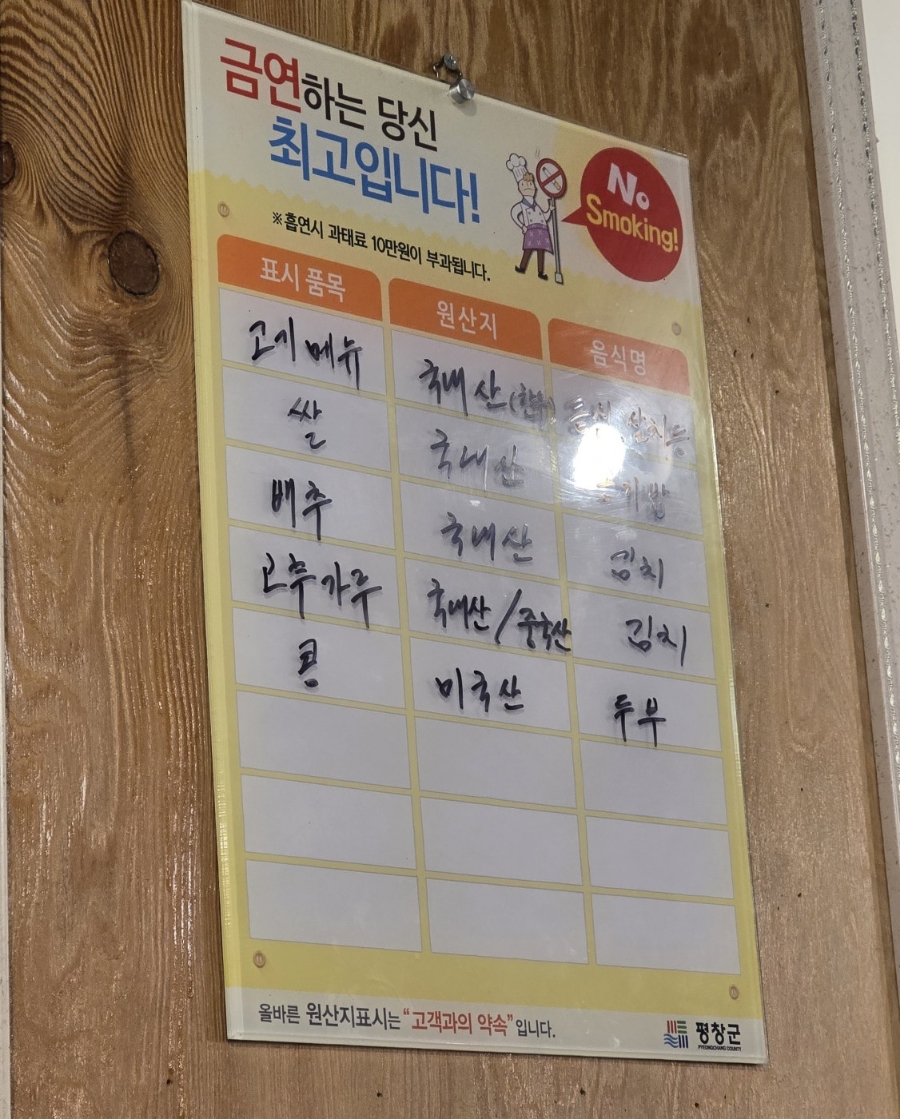 금연하는 당신
최고입니다!
※흡연시 과태료 10만원이 부과됩니다.
No
Smoking!
표시 품목 원산지 음식명
고기메뉴 국내산(한우)
쌀 국내산 공기밥
배추 국내산 김치
고추가루 국내산/중국산 김치
콩 미국산 두부
올바른 원산지표시는 "고객과의 약속"입니다.
평창군
PYEONGCHANG COUNTY